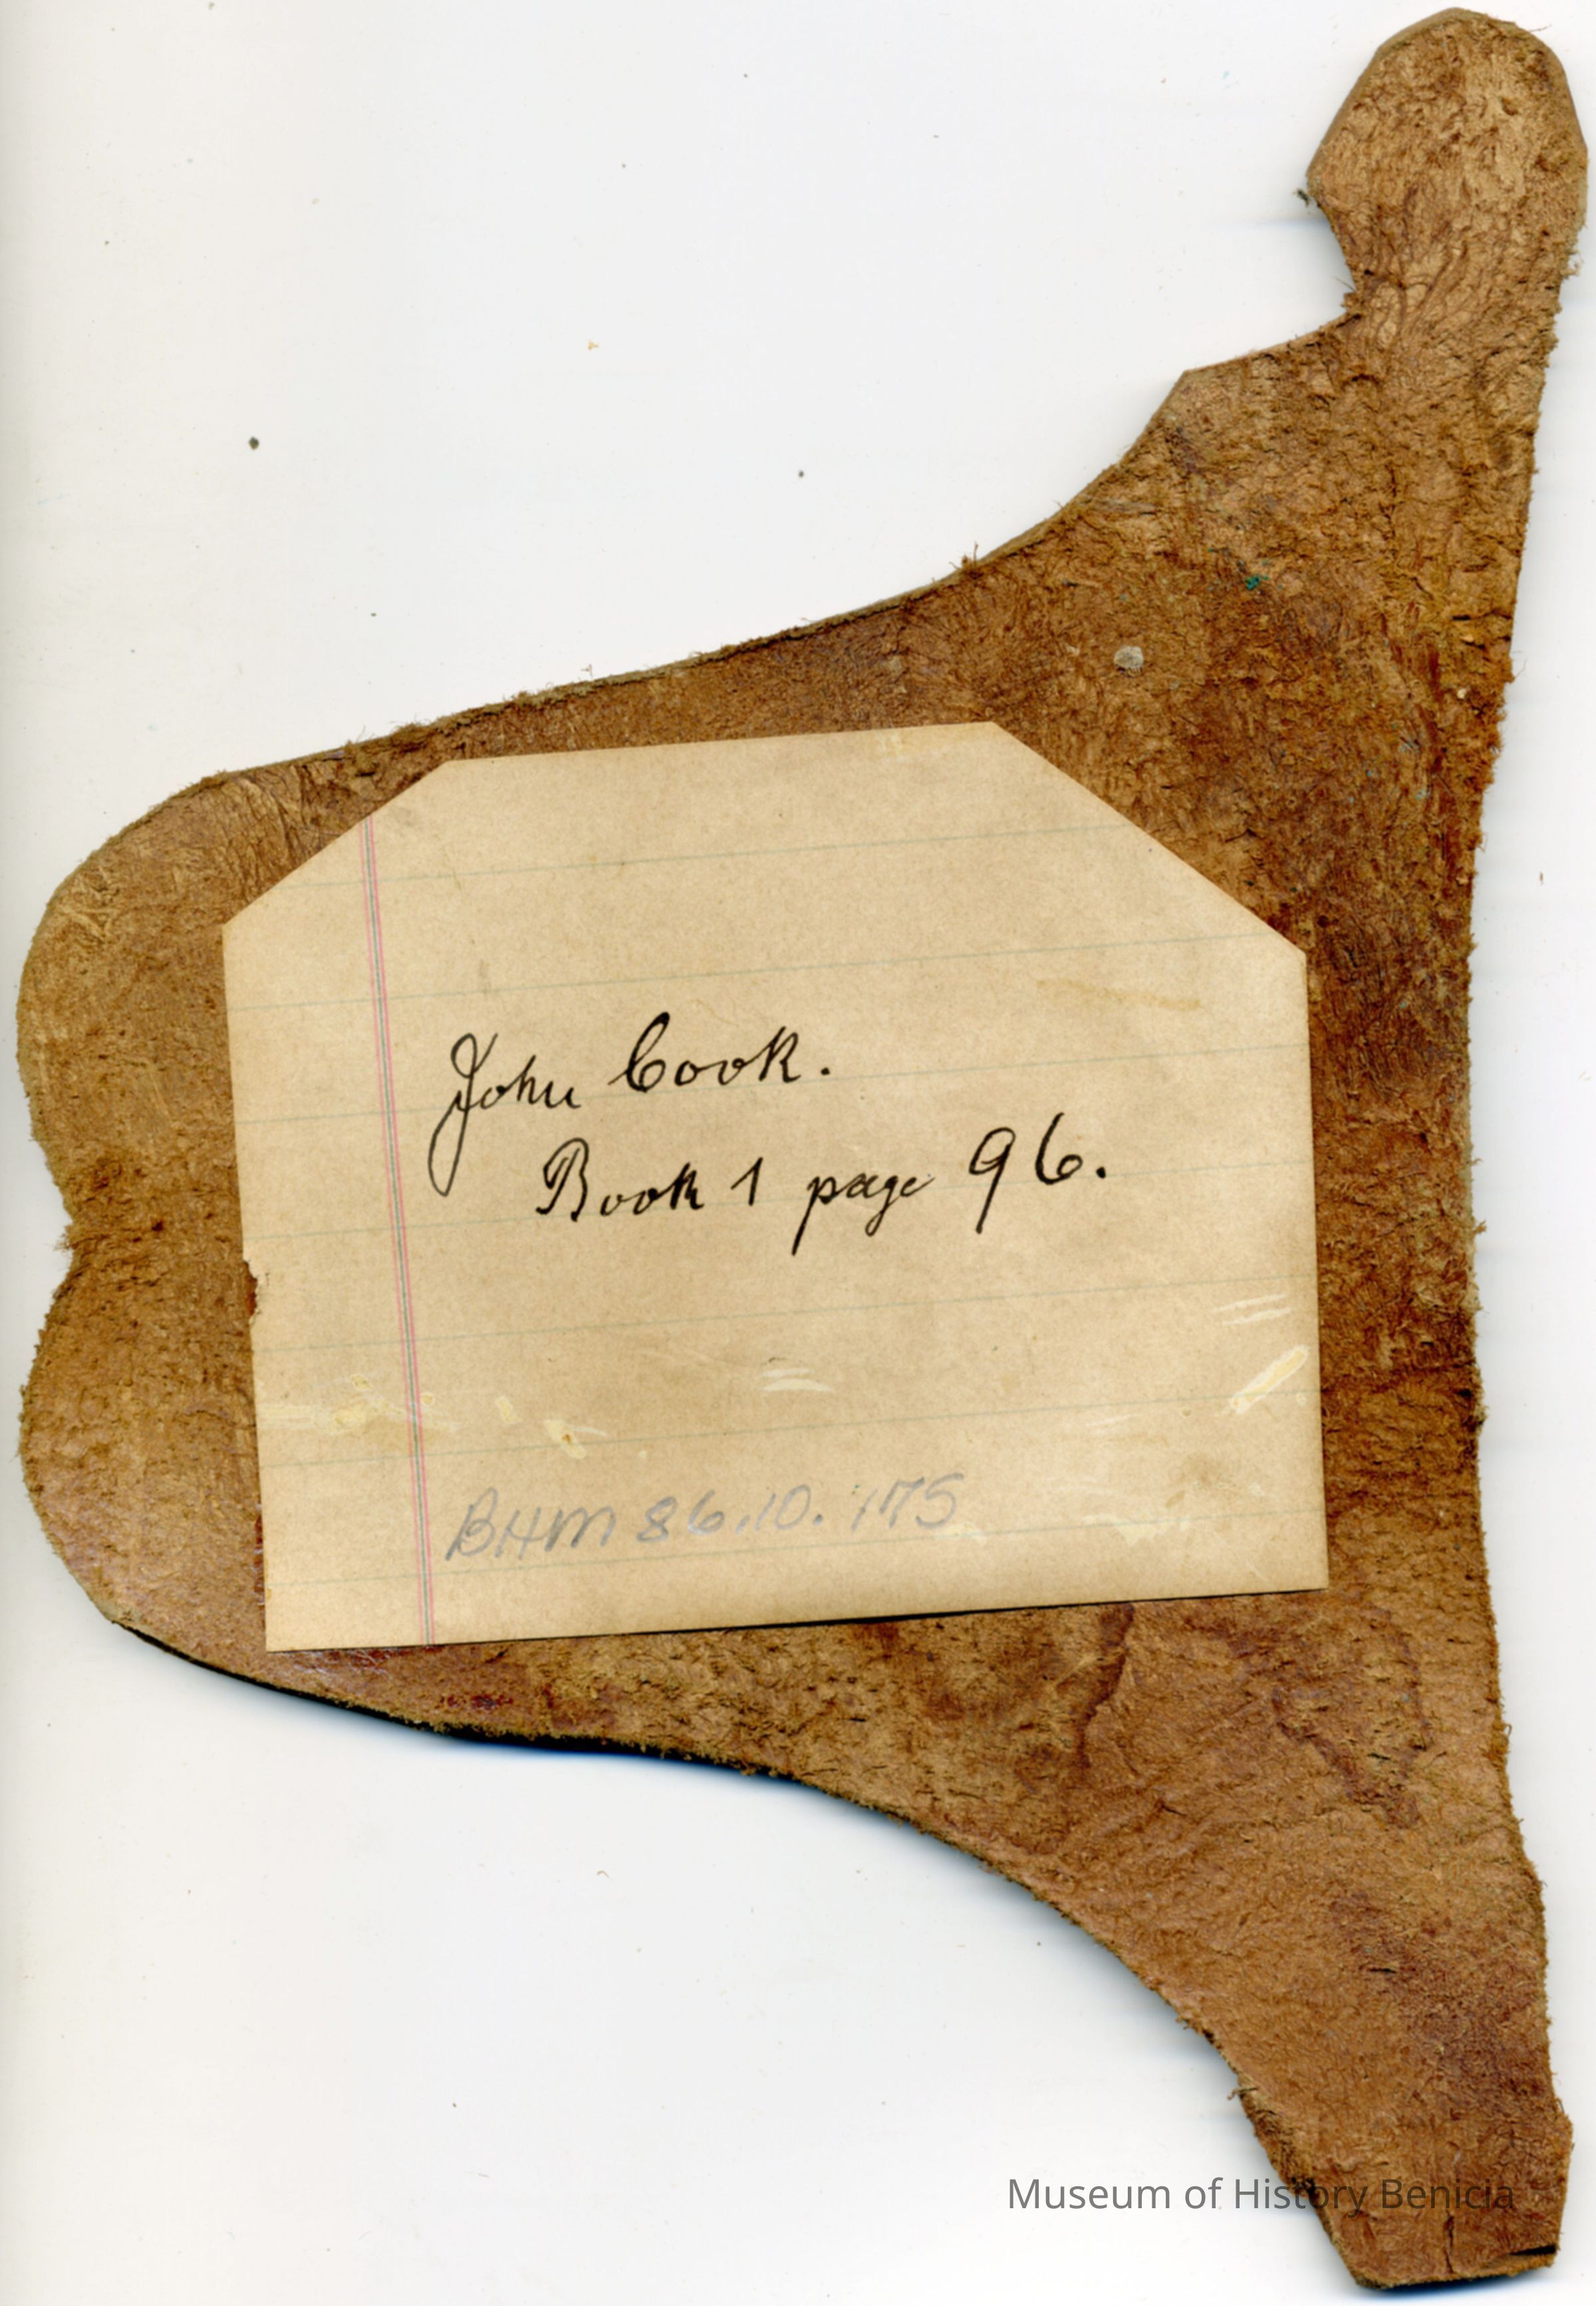 John Cook.
Book 1 page 96.
BHM 86.10.175
Museum of History Benicia